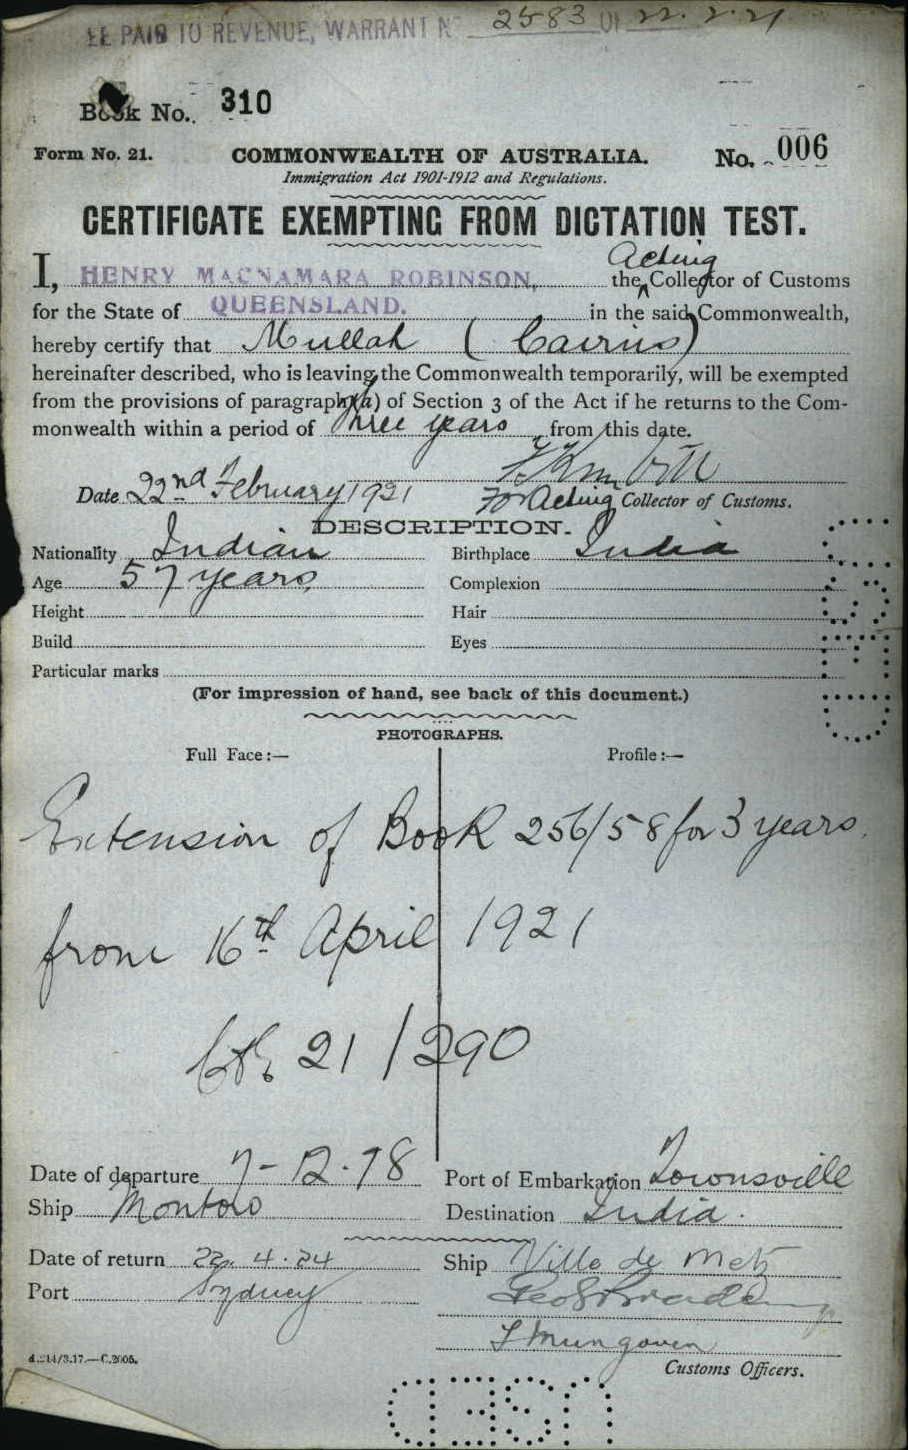 EE PAID TO REVENUE, WARRANT No 2583 OF 22.2.21
Book No. 310
Form No. 21. COMMONWEALTH OF AUSTRALIA. No. 006
Immigration Act 1901-1912 and Regulations.
CERTIFICATE EXEMPTING FROM DICTATION TEST.
I, HENRY MACNAMARA ROBINSON, the Acting Collector of Customs
for the State of QUEENSLAND. in the said Commonwealth,
hereby certify that Mullah (Cairns)
hereinafter described, who is leaving the Commonwealth temporarily, will be exempted
from the provisions of paragraph (a) of Section 3 of the Act if he returns to the Com-
monwealth within a period of three years from this date.
Date 22nd February 1921 For Acting Collector of Customs.
DESCRIPTION.
Nationality Indian Birthplace India
Age 57 years Complexion
Height Hair
Build Eyes
Particular marks
(For impression of hand, see back of this document.)
PHOTOGRAPHS.
Full Face:— Profile:—
Extension of Book 256/58 for 3 years
from 16th April 1921
21/290
Date of departure 7-12-18 Port of Embarkation Townsville
Ship Montoro Destination India.
Date of return 22.4.24 Ship Ville de Metz
Port Sydney
Mungoven
Customs Officers.
C.2005.
USED